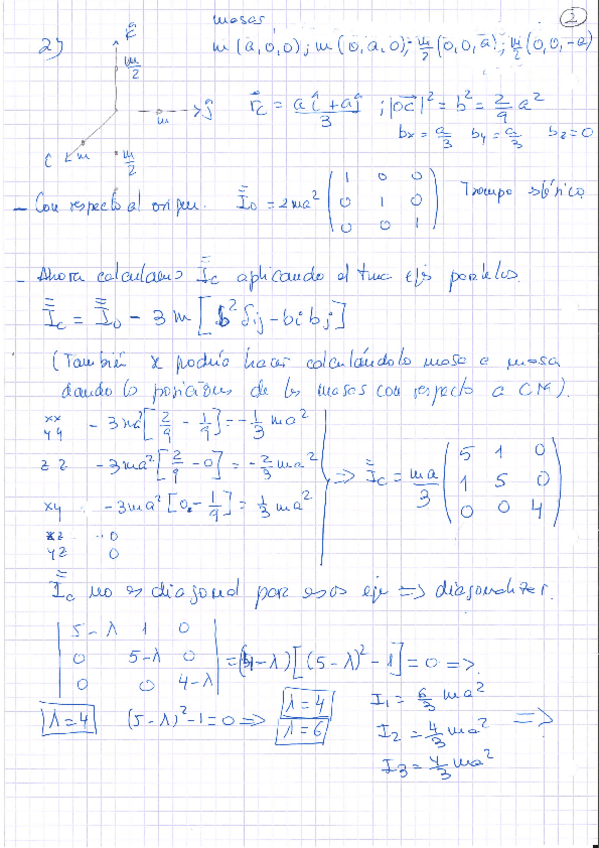 2
masas
2) m(a,0,0); m(0,a,0); m/2(0,0,a); m/2(0,0,-a)
k̂
m/2
m
ĵ
î m
m/2
r⃗c = (aî + aĵ)/3 ; |OC⃗|² = b² = 2/9 a²
bx = a/3 by = a/3 bz = 0
- Con respecto al origen. I̿o = 2ma² (1 0 0
0 1 0
0 0 1) Trompo esférico
- Ahora calculamos I̿c aplicando el tma ejes paralelos.
I̿c = I̿o - 3m[b² δij - bi bj]
(También se podría hacer calculándolo masa a masa
dando las posiciones de las masas con respecto a CM).
xx
yy - 3ma²[2/9 - 1/9] = -1/3 ma²
zz - 3ma²[2/9 - 0] = -2/3 ma²
xy - 3ma²[0 - 1/9] = 1/3 ma²
xz 0
yz 0
=> I̿c = ma/3 (5 1 0
1 5 0
0 0 4)
I̿c no es diagonal para esos eje => diagonalizar.
|5-λ 1 0|
|0 5-λ 0| = (4-λ)[(5-λ)² - 1] = 0 =>
|0 0 4-λ|
λ = 4 (5-λ)² - 1 = 0 => λ = 4
λ = 6
I1 = 6/3 ma²
I2 = 4/3 ma² =>
I3 = 4/3 ma²